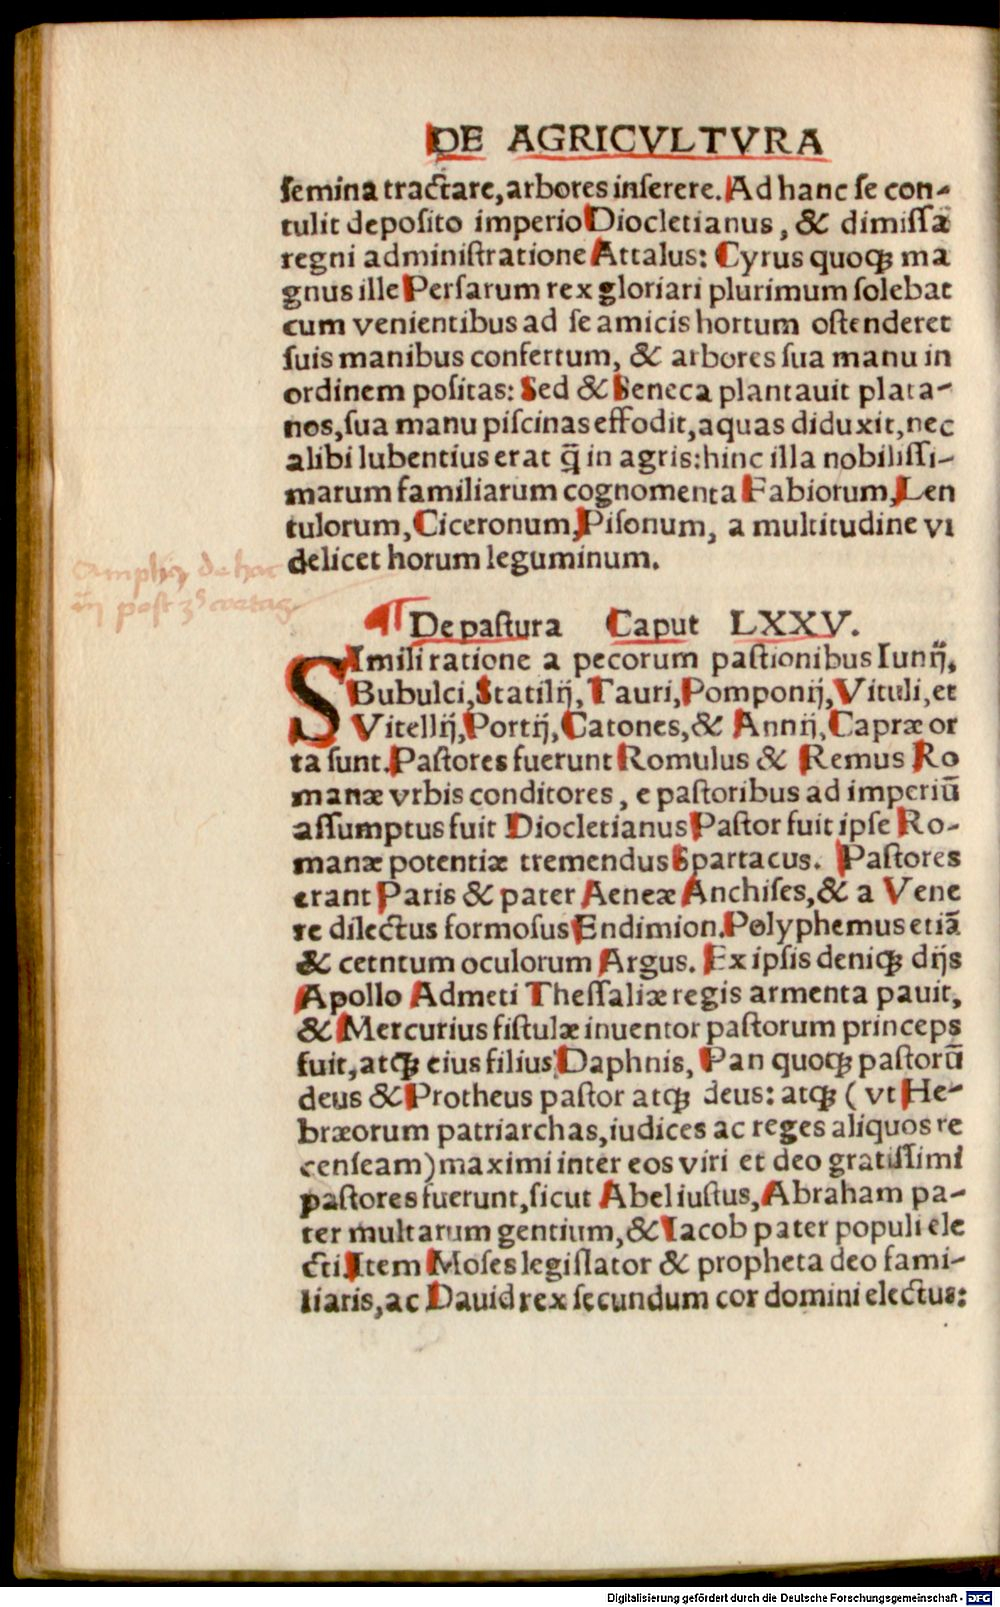 DE AGRICVLTVRA
ſemina tractare, arbores inſerere. Ad hanc ſe con-
tulit depoſito imperio Diocletianus, & dimiſſa
regni adminiſtratione Attalus: Cyrus quoqꝫ ma
gnus ille Perſarum rex gloriari plurimum ſolebat
cum venientibus ad ſe amicis hortum oſtenderet
ſuis manibus conſertum, & arbores ſua manu in
ordinem poſitas: Sed & Seneca plantauit plata-
nos, ſua manu piſcinas effodit, aquas diduxit, nec
alibi lubentius erat q̄ in agris: hinc illa nobiliſſi-
marum familiarum cognomenta Fabiorum, Len
tulorum, Ciceronum, Piſonum, a multitudine vi
delicet horum leguminum.
¶ De paſtura Caput LXXV.
SImili ratione a pecorum paſtionibus Iunij,
Bubulci, Statilij, Tauri, Pomponij, Vituli, et
Vitellij, Portij, Catones, & Annij, Capræ or
ta ſunt. Paſtores fuerunt Romulus & Remus Ro
manæ vrbis conditores, e paſtoribus ad imperiū
aſſumptus fuit Diocletianus Paſtor fuit ipſe Ro-
manæ potentiæ tremendus Spartacus. Paſtores
erant Paris & pater Aeneæ Anchiſes, & a Vene
re dilectus formoſus Endimion. Polyphemus etiā
& cetntum oculorum Argus. Ex ipſis deniqꝫ dijs
Apollo Admeti Theſſaliæ regis armenta pauit,
& Mercurius fiſtulæ inuentor paſtorum princeps
fuit, atqꝫ eius filius Daphnis, Pan quoqꝫ paſtorū
deus & Protheus paſtor atqꝫ deus: atqꝫ ( vt He-
bræorum patriarchas, iudices ac reges aliquos re
cenſeam) maximi inter eos viri et deo gratiſſimi
paſtores fuerunt, ſicut Abel iuſtus, Abraham pa-
ter multarum gentium, & Iacob pater populi ele
cti. Item Moſes legiſlator & propheta deo fami-
liaris, ac Dauid rex ſecundum cor domini electus:
de hac
post
Digitalisierung gefördert durch die Deutsche Forschungsgemeinschaft - DFG